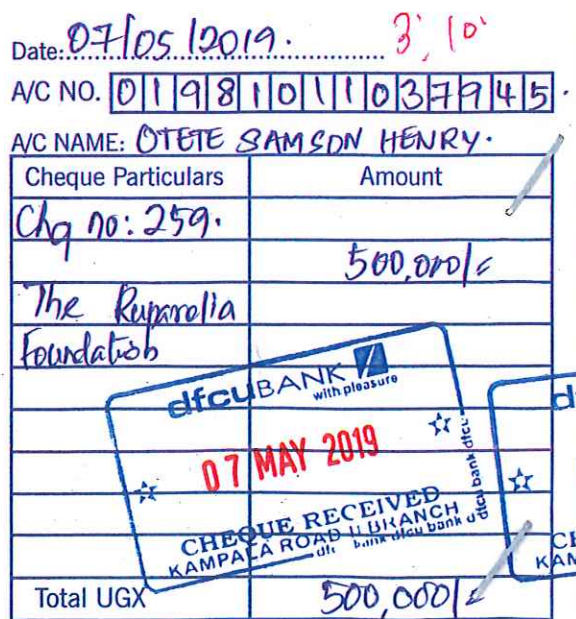 Date: 07/05/2019. 3' 10'
A/C NO. 01981011037945.
A/C NAME: OTETE SAMSON HENRY.
Cheque Particulars Amount
Chq no: 259.
500,000/=
The Ruparelia
Foundation
dfcu BANK
with pleasure
07 MAY 2019
CHEQUE RECEIVED
KAMPALA ROAD II BRANCH
dfcu bank dfcu bank
Total UGX 500,000/=